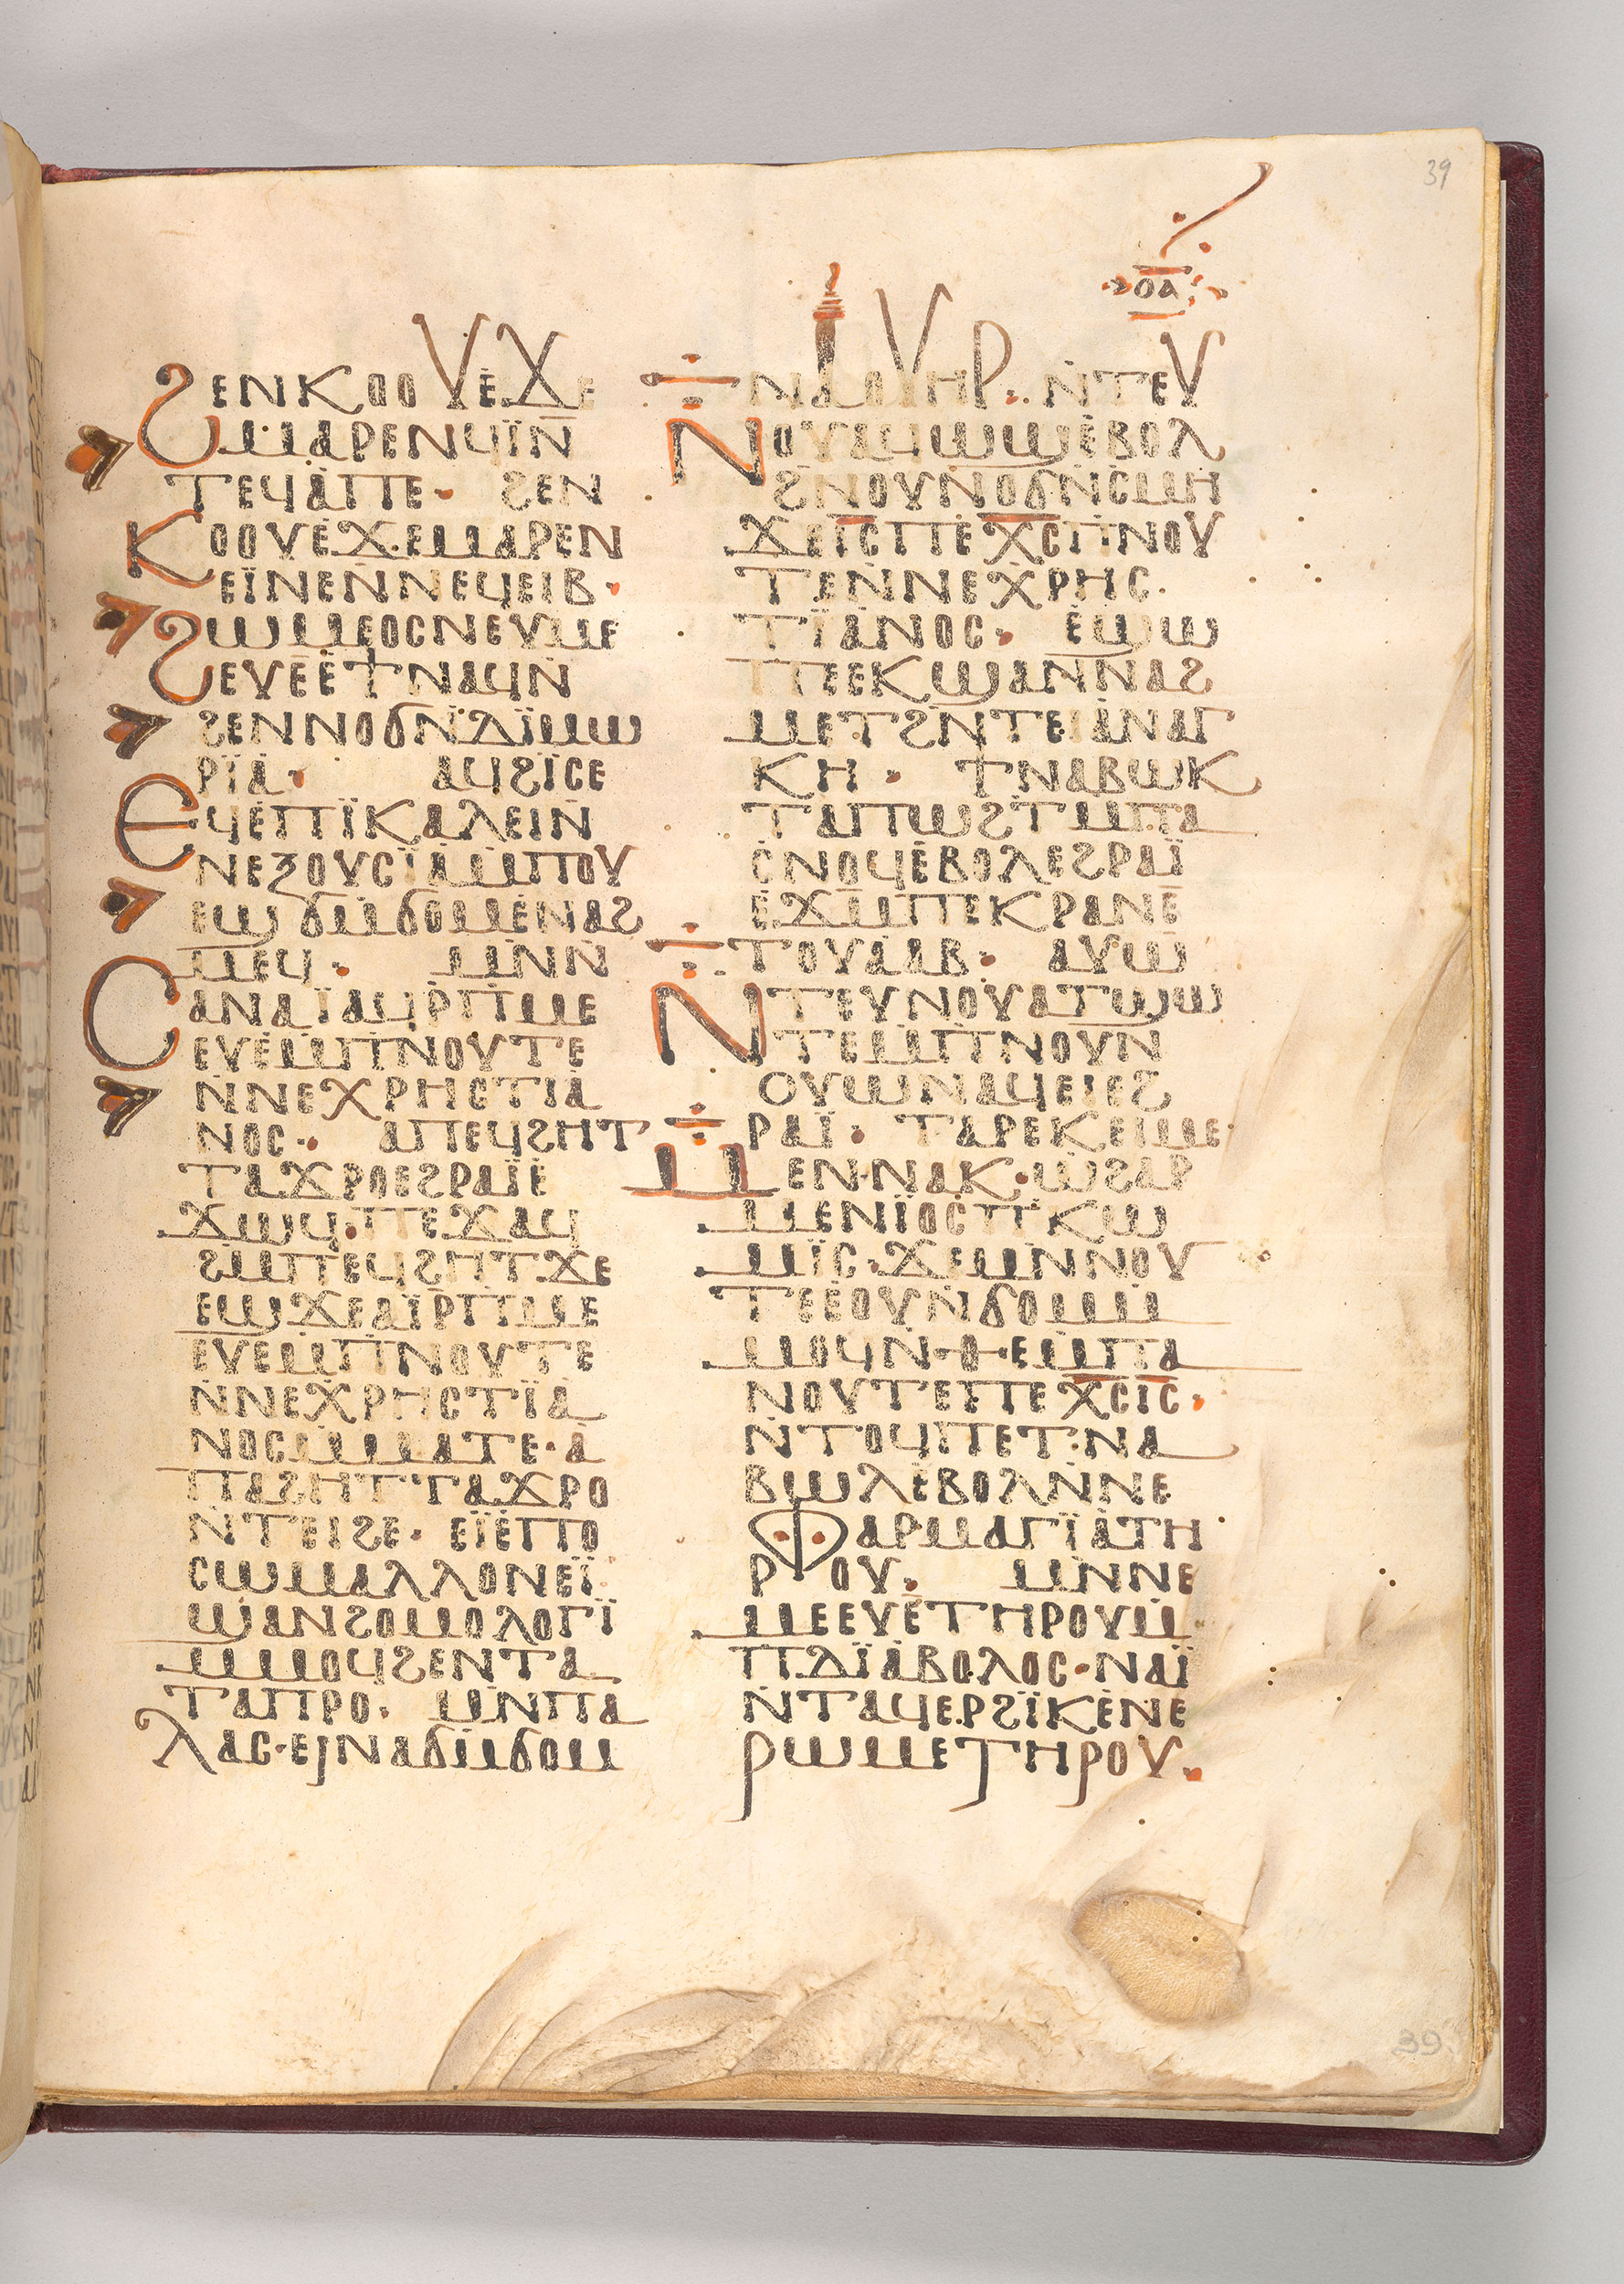 39
ⲟⲁ
ϩⲉⲛⲕⲟⲟⲩⲉϫⲉ
ⲙⲁⲣⲉⲛϥⲓ̈ⲛ̇
ⲧⲉϥⲁ̇ⲡⲉ· ϩⲉⲛ
ⲕⲟⲟⲩⲉ̇ϫⲉⲙⲁⲣⲉⲛ
ⲉⲓ̈ⲛⲉⲛ̇ⲛⲉϥⲉⲓⲃ·
ϩⲱⲙⲉⲟⲥⲛⲉⲩⲙⲉ
ϩⲉⲩⲉ̇ⲉ̇ϯⲛⲁϥⲛ̇
ϩⲉⲛⲛⲟϭⲛ̇ⲇⲓ̈ⲙⲱ
ⲣⲓ̈ⲁ· ⲁϥϩⲓ̈ⲥⲉ
ⲉϥⲉ̇ⲡⲓ̈ⲕⲁⲗⲉⲓⲛ̇
ⲛⲉⲍⲟⲩⲥⲓ̈ⲁⲙ̇ⲡⲟⲩ
ⲉϣϭⲙ̇ϭⲟⲙⲉ̇ⲛⲁϩ
ⲙⲉϥ· ⲙⲛ̇ⲛ̇
ⲥⲁⲛⲁⲓ̈ⲁϥⲣ̇ⲡⲙⲉ
ⲉⲩⲉ̇ⲙ̇ⲡⲛⲟⲩⲧⲉ
ⲛ̇ⲛⲉⲭⲣⲏⲥⲧⲓⲁ
ⲛⲟⲥ· ⲁⲡⲉϥϩⲏⲧ
ⲧⲁϫⲣⲟⲉϩⲣⲁⲓ̈ⲉ̇
ϫⲱϥ·ⲡⲉϫⲁϥ
ϩⲙ̇ⲡⲉϥϩⲏⲧ·ϫⲉ
ⲉϣϫⲉⲁⲓ̈ⲣ̇ⲡⲙⲉ
ⲉⲩⲉⲙ̇ⲡⲛⲟⲩⲧⲉ
ⲛ̇ⲛⲉⲭⲣⲏⲥⲧⲓ̈ⲁ
ⲛⲟⲥⲙ̇ⲙⲁⲧⲉ·ⲁ̇
ⲡⲁϩⲏⲧⲧⲁϫⲣⲟ
ⲛ̇ⲧⲉⲓϩⲉ· ⲉⲓ̈ⲉ̇ⲡⲟ
ⲥⲱⲙⲁⲗⲗⲟⲛⲉⲓ̈
ϣⲁⲛϩⲟⲙⲟⲗⲟⲅⲓ̈
ⲙ̇ⲙⲟϥϩⲉⲛⲧⲁ
ⲧⲁⲡⲣⲟ· ⲙⲛ̇ⲡⲁ
ⲗⲁⲥ·ⲉⲓⲛⲁϭⲙ̇ϭⲟⲙ
ⲛⲁⲟⲩⲏⲣ· ⲛ̇ⲧⲉⲩ
ⲛⲟⲩⲁϥⲱϣⲉ̇ⲃⲟⲗ
ϩⲛⲟⲩⲛⲟϭⲛ̇ⲥⲙⲏ
ϫⲉⲓ̅ⲥ̅ⲡⲉⲭ̅ⲥ̅ⲡⲛⲟⲩ
ⲧⲉⲛ̇ⲛⲉⲭⲣⲏⲥ·
ⲧⲓ̈ⲁⲛⲟⲥ· ⲉ̇ϣⲱ
ⲡⲉⲉⲕϣⲁⲛⲛⲁϩ
ⲙⲉⲧϩⲛ̇ⲧⲉⲓⲁ̇ⲛⲁⲅ
ⲕⲏ· ϯⲛⲁⲃⲱⲕ
ⲧⲁⲡⲱϩⲧⲙ̇ⲡⲁ
ⲥⲛⲟϥⲉ̇ⲃⲟⲗⲉϩⲣⲁⲓ̈
ⲉ̇ϫⲙ̇ⲡⲉⲕⲣⲁⲛⲉ̇
ⲧⲟⲩⲁⲁⲃ· ⲁⲩⲱ
ⲛⲧⲉⲩⲛⲟⲩⲁⲡϣⲱ
ⲧⲉⲙ̇ⲡⲛⲟⲩⲛ
ⲟⲩⲱⲛⲁϥⲉⲓⲉϩ
ⲣⲁⲓ̈· ⲧⲁⲣⲉⲕⲉⲓⲙⲉ·
ⲙⲉⲛ·ⲛⲁⲕ·ⲱ̇ϩⲁⲣ
ⲙⲉⲛⲓ̈ⲟⲥⲡⲕⲱ
ⲙⲓ̈ⲥ·ϫⲉⲙⲛ̇ⲛⲟⲩ
ⲧⲉⲉ̇ⲟⲩⲛ̇ϭⲟⲙⲙ̇
ⲙⲟϥⲛ̇ⲑⲉⲙ̇ⲡⲁ
ⲛⲟⲩⲧⲉⲡⲉⲭ̅ⲥ̅ⲓ̅ⲥ̅·
ⲛ̇ⲧⲟϥⲡⲉⲧ·ⲛⲁ
ⲃⲱⲗⲉ̇ⲃⲟⲗⲛ̇ⲛⲉ
ⲫⲁⲣⲙⲁⲅⲓ̈ⲁⲧⲏ
ⲣⲟⲩ· ⲙⲛ̇ⲛⲉ
ⲙⲉⲉⲩⲉ̇ⲧⲏⲣⲟⲩⲙ̇
ⲡⲇⲓ̈ⲁⲃⲟⲗⲟⲥ·ⲛⲁⲓ̈
ⲛ̇ⲧⲁϥⲉⲣϩⲓ̈ⲕⲉ̇ⲛⲉ
ⲣⲱⲙⲉⲧⲏⲣⲟⲩ·
39